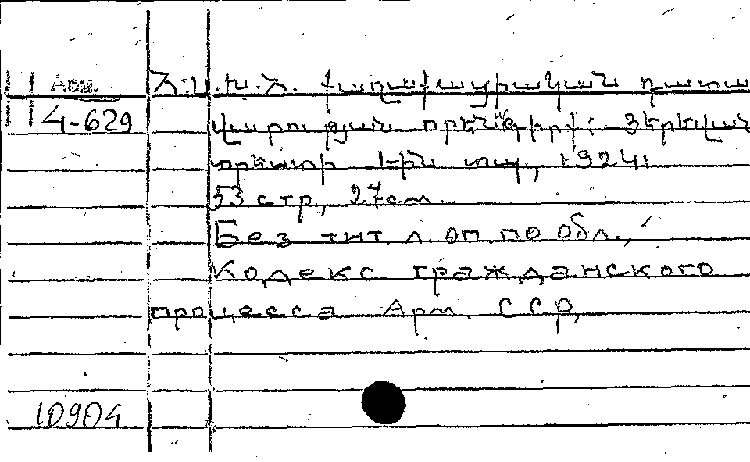 Арм. Հ.Ս.Խ.Հ. քաղաքացիական դատա
4-629 վարության օրենսգիրք։ Երևան
պետ 1-ին տպ., 1924։
53 стр., 27см.
Без тит. л. оп. по обл.,
Кодекс гражданского
процесса Арм. ССР,
10904